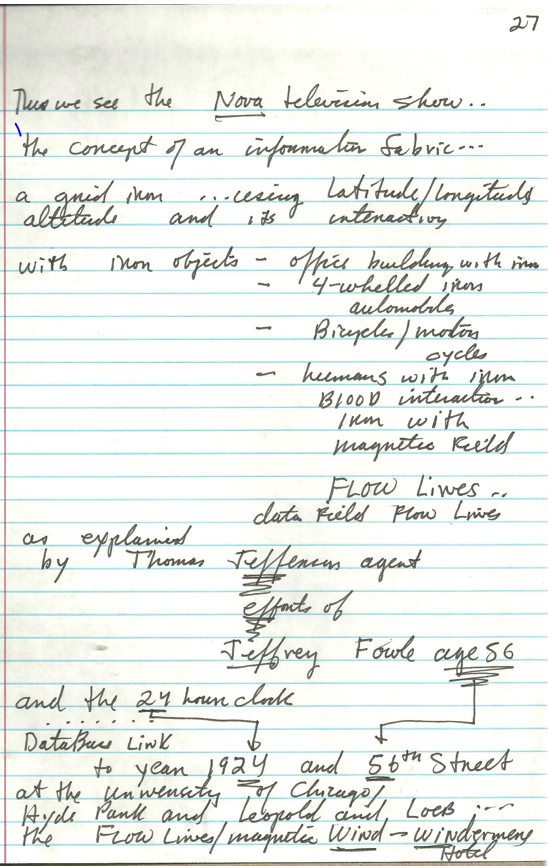 27
Thus we see the Nova television show..
the concept of an information fabric...
a grid iron ...using Latitude/Longitude
altitude and its interaction
with iron objects - office building with iron
- 4-whelled iron
automobiles
- Bicycles/motor
cycles
- humans with iron
BLOOD interaction..
iron with
magnetic field
FLOW Lines..
data field Flow Lines
as explained
by Thomas Jefferson agent
efforts of
Jeffrey Fowle age 56
and the 24 hour clock
.......
DataBase Link
to year 1924 and 56th Street
at the university of Chicago/
Hyde Park and Leopold and Loeb ....
the FLOW Lines/magnetic Wind - Windermere
Hotel